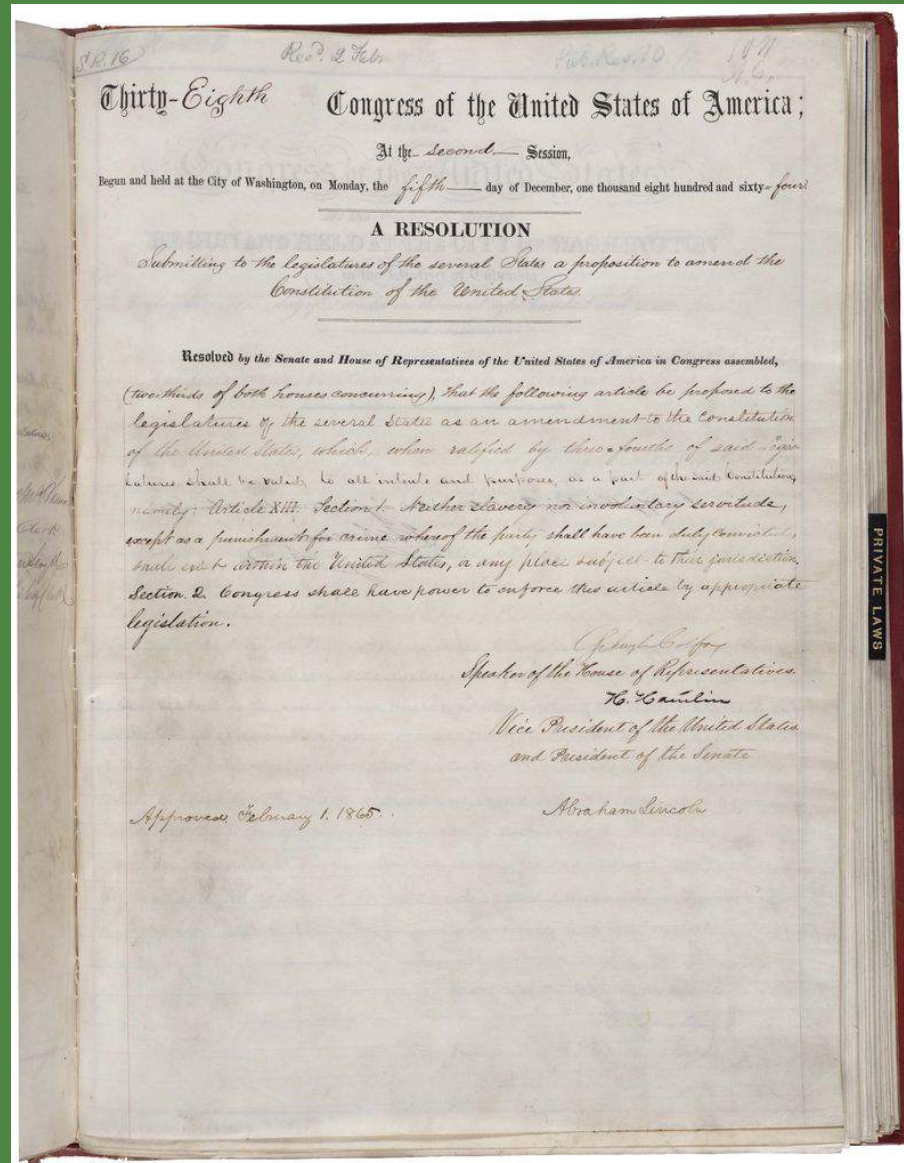 S.R. 16
Rec'd. 2 Feb.
Pub. Res. 10
Thirty-Eighth Congress of the United States of America;
At the second Session,
Begun and held at the City of Washington, on Monday, the fifth day of December, one thousand eight hundred and sixty-four
A RESOLUTION
Submitting to the legislatures of the several States a proposition to amend the
Constitution of the United States.
Resolved by the Senate and House of Representatives of the United States of America in Congress assembled,
(two-thirds of both houses concurring), that the following article be proposed to the
legislatures of the several States as an amendment to the Constitution
of the United States, which, when ratified by three-fourths of said legis-
latures, shall be valid, to all intents and purposes, as a part of the said Constitution,
namely: Article XIII. Section 1. Neither slavery nor involuntary servitude,
except as a punishment for crime whereof the party shall have been duly convicted,
shall exist within the United States, or any place subject to their jurisdiction.
Section 2. Congress shall have power to enforce this article by appropriate
legislation.
Schuyler Colfax
Speaker of the House of Representatives.
H. Hamlin
Vice President of the United States
and President of the Senate
Approved, February 1. 1865. Abraham Lincoln
PRIVATE LAWS